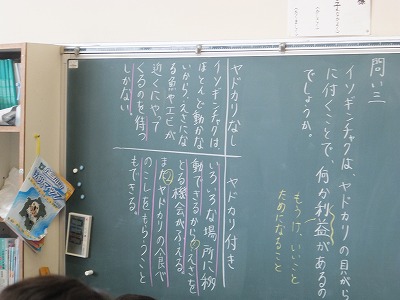 問い三
イソギンチャクは、ヤドカリの貝がら
に付くことで、何か利益があるの
でしょうか。
もうけ、いいこと
ためになること
ヤドカリなし
イソギンチャクは、
ほとんど動かな
いから、えさにな
る魚やエビが
近くにやって
くるのを待つ
しかない
ヤドカリ付き
いろいろな場所に移
動できるから、えさを
とる機会がふえる。
また、ヤドカリの食べ
のこしをもらうこと
もできる。